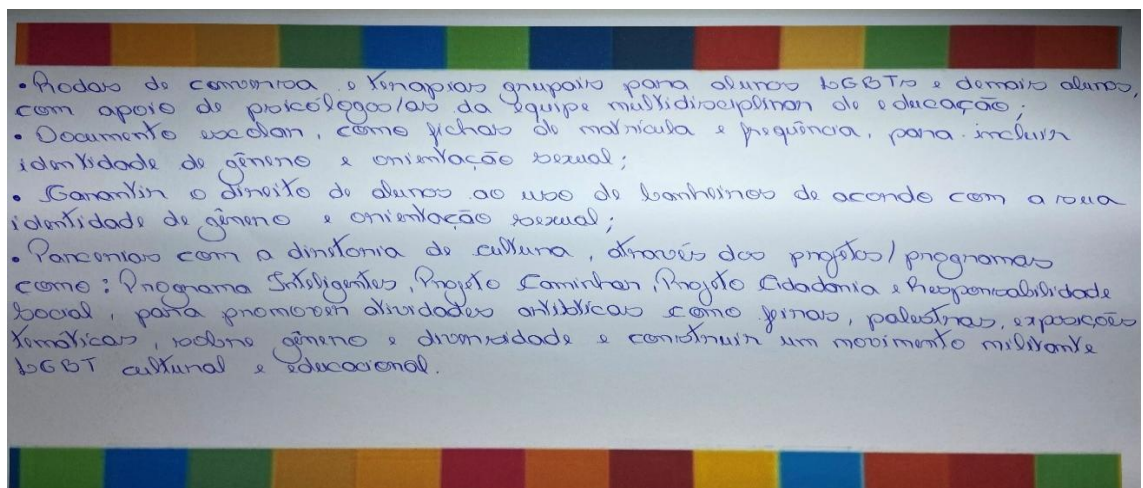 • Rodas de conversa e terapias grupais para alunos LGBTs e demais alunos,
com apoio de psicólogos/as da equipe multidisciplinar de educação;
• Documento escolar, como fichas de matrícula e frequência, para incluir
identidade de gênero e orientação sexual;
• Garantir o direito de alunos ao uso de banheiros de acordo com a sua
identidade de gênero e orientação sexual;
• Parcerias com a diretoria de cultura, através dos projetos/programas
como: Programa Inteligentes, Projeto Caminhar, Projeto Cidadania e Responsabilidade
Social, para promover atividades artísticas como feiras, palestras, exposições
temáticas, sobre gênero e diversidade e construir um movimento militante
LGBT cultural e educacional.